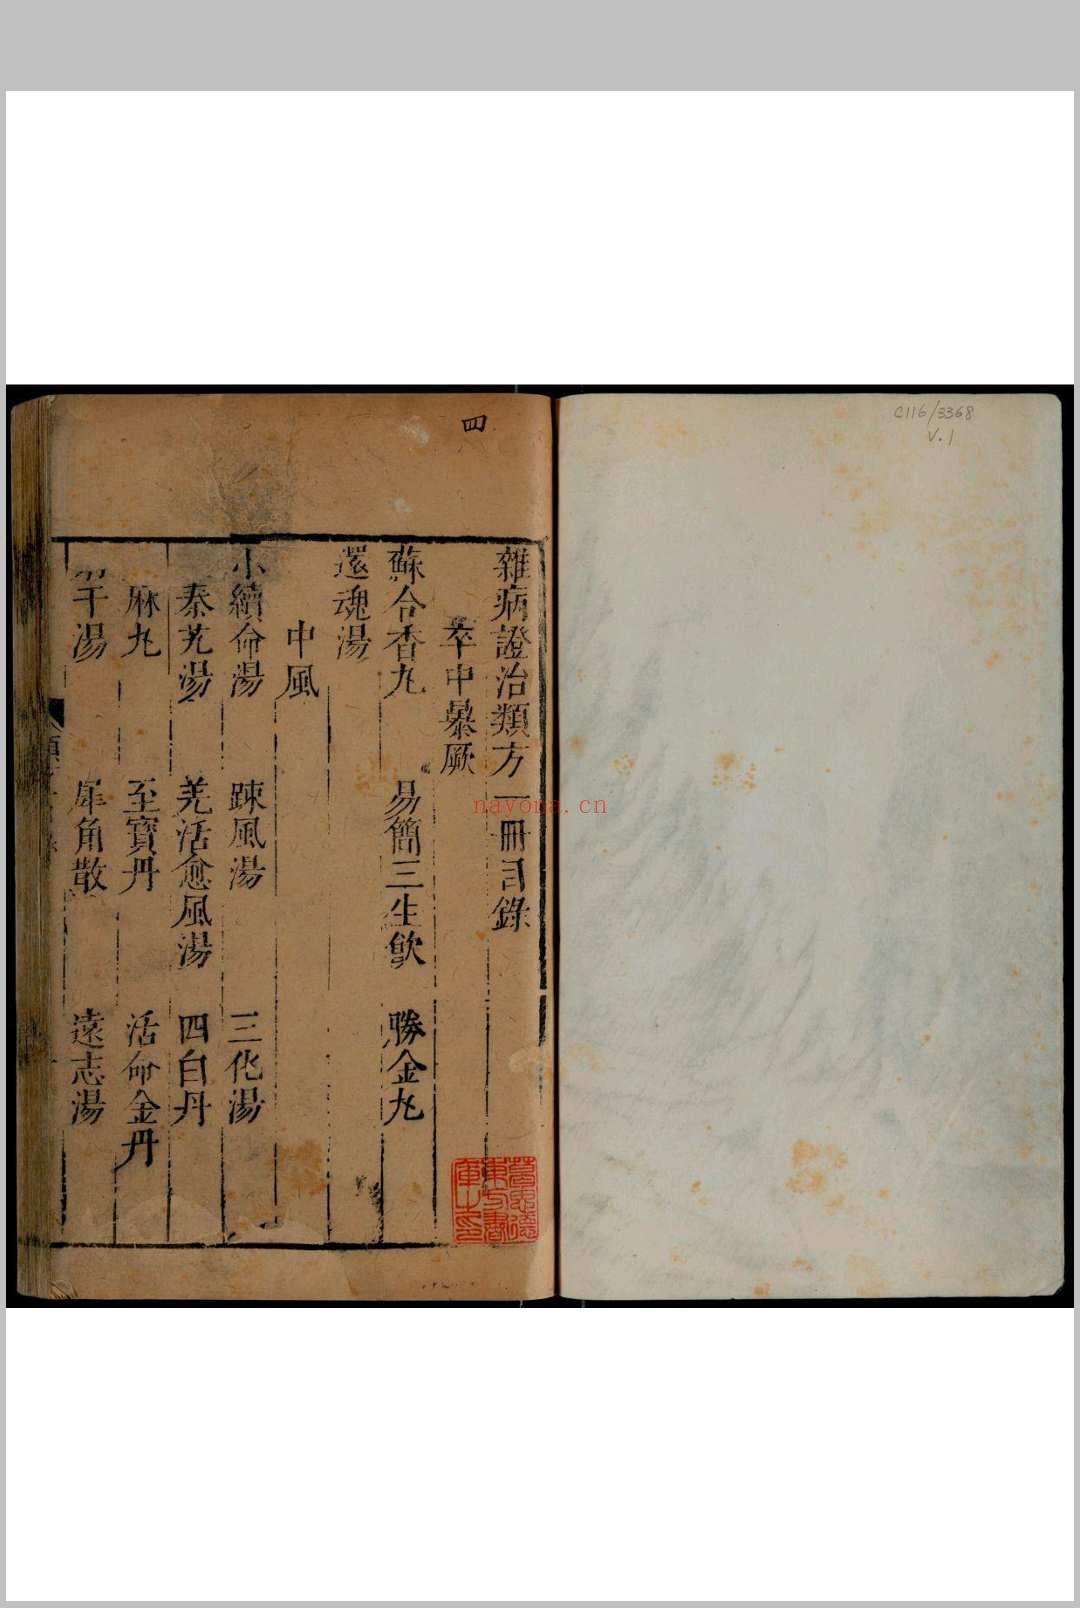 C116/3368
V.1
四
雜病證治類方一冊目錄
卒中暴厥
蘇合香丸 易簡三生飲 勝金丸
還魂湯
中風
小續命湯 踈風湯 三化湯
秦艽湯 羌活愈風湯 四白丹
麻丸 至寶丹 活命金丹
干湯 犀角散 遠志湯
navona.cn